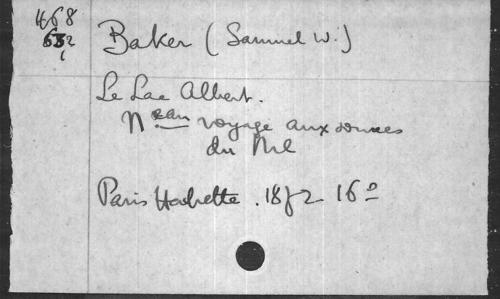 468
632
Baker (Samuel W.)
Le Lac Albert.
Neau voyage aux sources
du Nil
Paris Hachette. 1872 16º